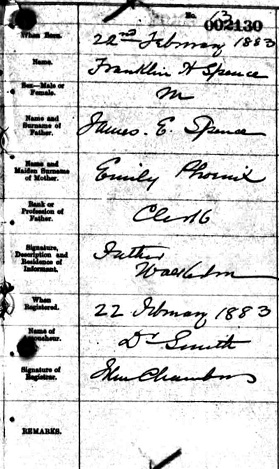 No. 13
002130
When Born.
22nd February 1883
Name.
Franklin A Spence
Sex—Male or
Female.
M
Name and
Surname of
Father.
James. E. Spence
Name and
Maiden Surname
of Mother.
Emily Phoenix
Rank or
Profession of
Father.
Clerk
Signature,
Description and
Residence of
Informant.
Father
When
Registered.
22 February 1883
Name of
Accoucheur.
Dr Smith
Signature of
Registrar.
Chambers
REMARKS.